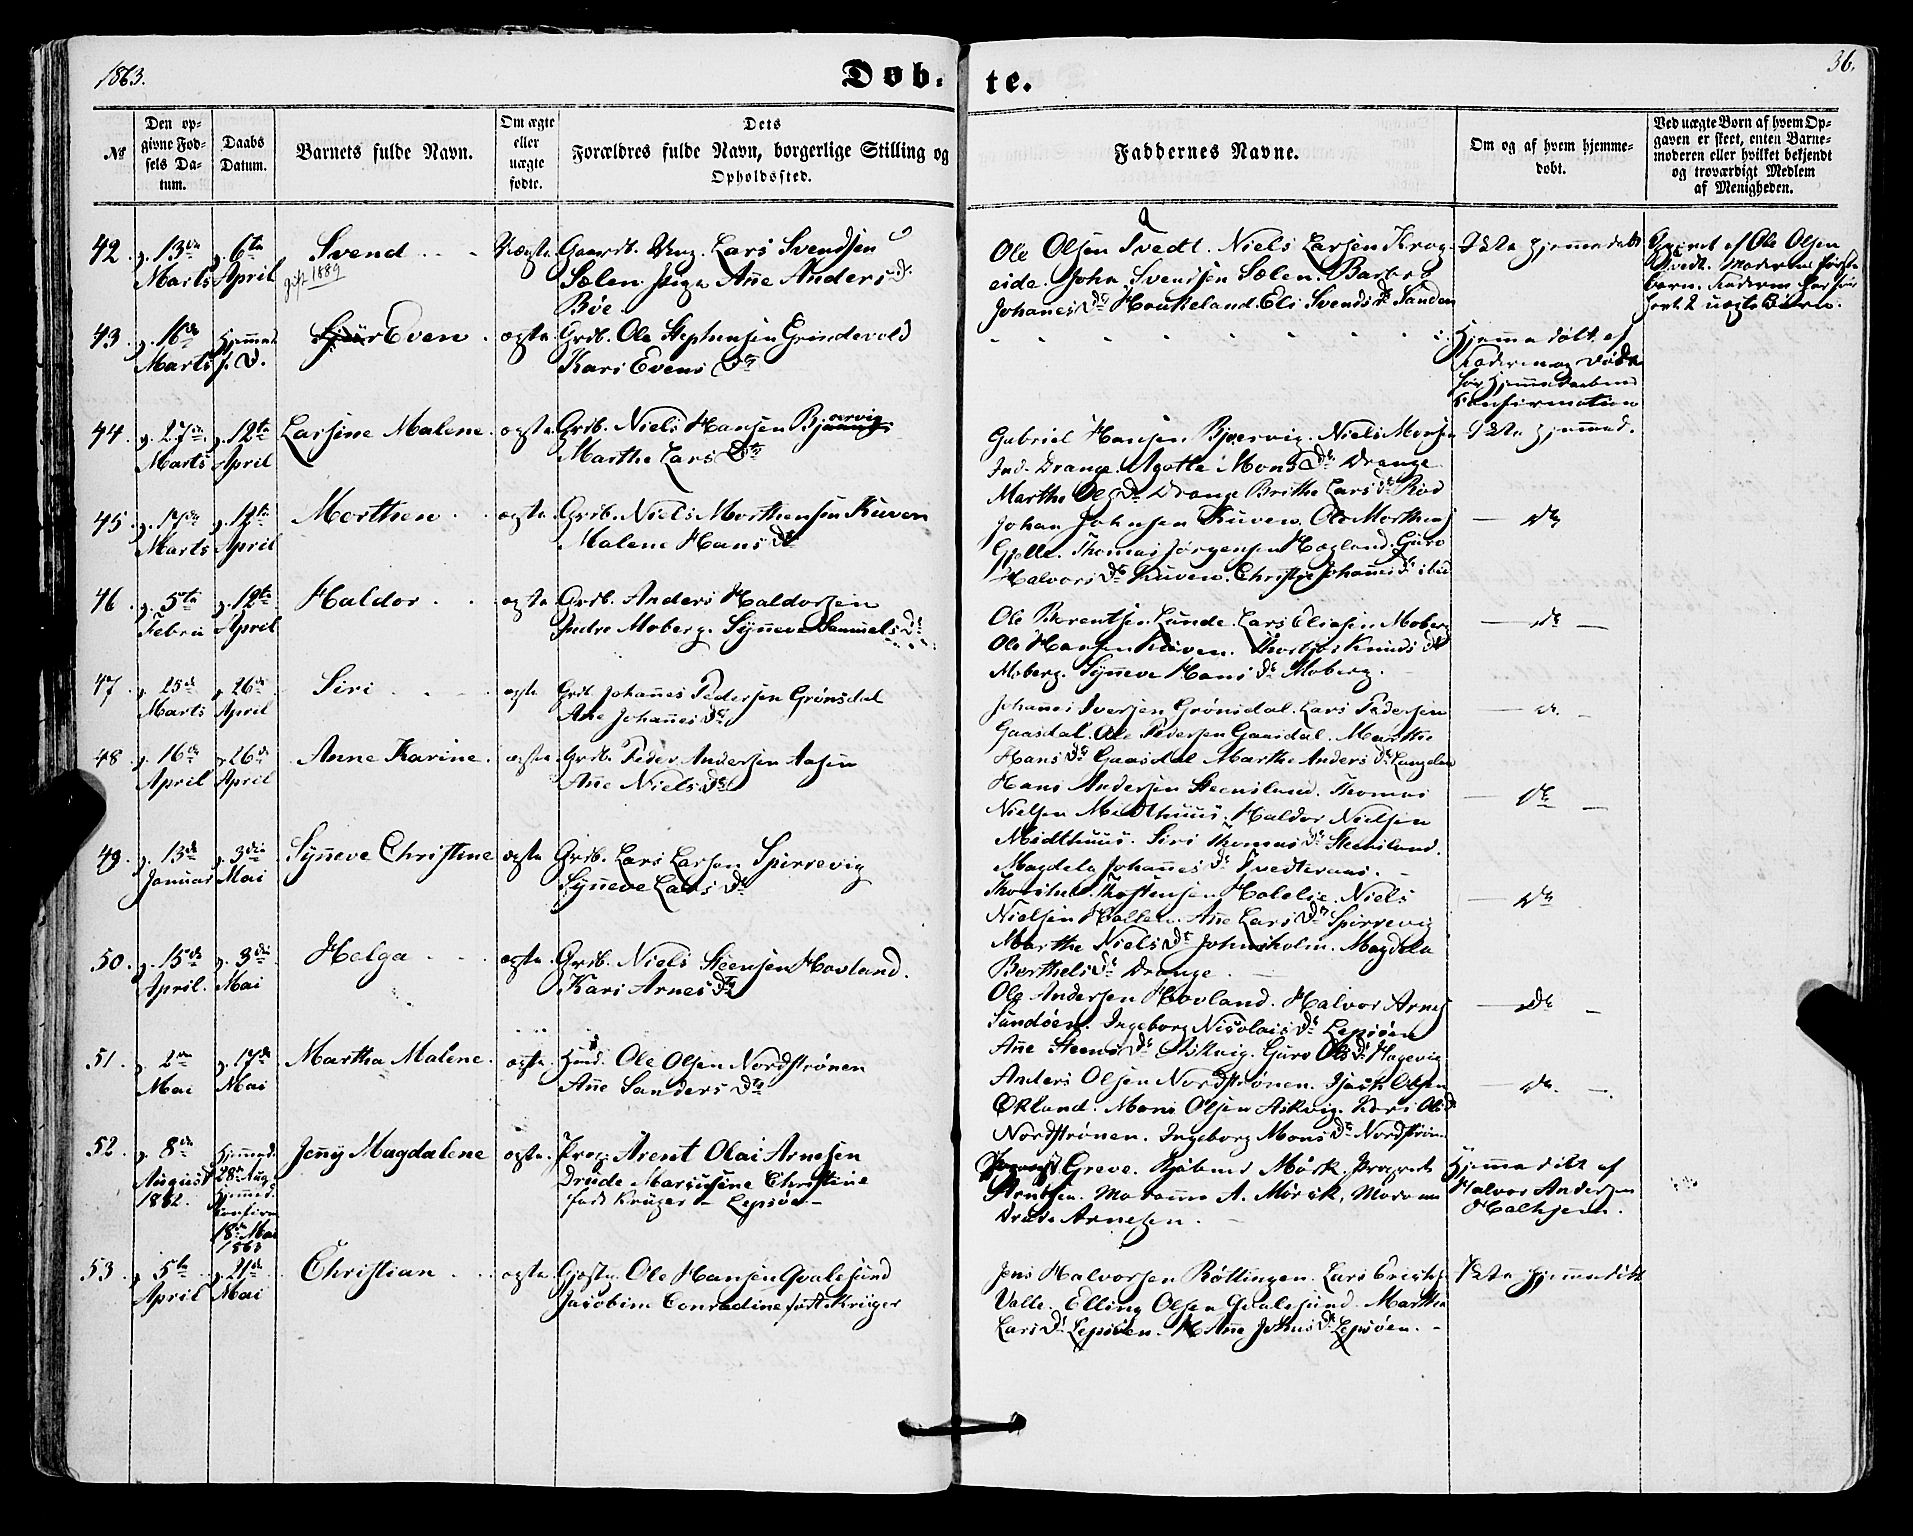 1863.
Døb- te.
36.
No
Den op-
givne Fød-
sels Da-
tum.
Daabs
Datum.
Barnets fulde Navn.
Om ægte
eller
uægte
fødte.
Dets
Forældres fulde Navn, borgerlige Stilling og
Opholdssted.
Faddernes Navne.
Om og af hvem hjemme-
døbt.
Ved uægte Børn af hvem Op-
gaven er skeet, enten Barne-
moderen eller hvilket bekjendt
og troværdigt Medlem
af Menigheden.
42. 13de Marts 6te April Svend Uægte Gaardb. Ung. Lars Svendsen
gift 1889
Sælen Pige Ane Anders Dr
Bøe
Ole Olsen Tvedt. Niels Larsen Krog-
eide. John Svendsen Sælen. Barbro
Johanes Dr Haukeland. Eli Svends Dr Sanden
Ikke hjemmedøbt
Opgivet af Ole Olsen
Tvedt. Moderens første
Barn. Faderen har før
havt 2 uægte Børn.
43. 16de Marts Hjemmed. s. D. Even ægte Grdb. Ole Stephensen Grindevold
Kari Evens Dtr
Hjemmedøbt af
Faderen og døde
før Hjemmedaabens
Confirmation
44. 27de Marts 12te April Larsine Malene ægte Grdb. Niels Hansen Bjørvig
Marthe Lars Dtr
Gabriel Hansen Bjørvig. Niels Monsen
Ind. Drange. Agathe Mons Dr Drange
Marthe Ols Dr Drange Brithe Lars Dr Rød
Ikke hjemmed.
45. 17de Marts 12te April Morthen ægte Grdb. Niels Morthensen Kuven
Malene Hans Dr
Johan Johnsen Kuven. Ole Morthens.
Gjelle. Thomas Jørgensen Hægland. Guro
Halvors Dr Kuven. Christje Johanes Dr ibid
Do
46. 5te Febru 12te April Haldor ægte Grdb. Anders Haldorsen
Indre Moberg. Synneve Samuels Dr
Ole Berentsen Lunde. Lars Eliasen Moberg
Ole Hansen Kuven. Knuds Dr
Moberg. Synneve Hans Dr Moberg.
Do
47. 25de Marts 26de April Siri ægte Grdb. Johannes Pedersen Grønsdal
Ane Johannes Dr
Johannes Iversen Grønsdal. Lars Pedersen
Gaasdal. Ole Pedersen Gaasdal. Marthe
Hans Dr Gaasdal Marthe Anders Dr
Do
48 16de April 26de April Anne Karine ægte Grdb. Peder Andersen Aasen
Ane Niels Dr
Hans Andersen Steensland. Thomas
Nielsen Midthuus. Haldor Nielsen
Midthuus. Siri Thomas Dr Steensland.
Magdela Johannes Dr Tvedteraas.
Do
49. 13de Januar 3die Mai Synneve Christine ægte Grdb. Lars Larsen Spirrevig
Synneve Lars Dr
Thorsten Thostensen Holelie. Niels
Nielsen Holle. Ane Lars Dr Spirrevig
Marthe Niels Dr Johnsholm. Magdela
Berthels Dr Drange.
Do
50. 15de April. 3die Mai Helga ægte Grdb. Niels Steensen Hovland.
Kari Arnes Dtr
Ole Andersen Hovland. Halvor Arnes.
Sundøen. Ingeborg Nicolais Dr Lepsøen
Ane Steens Dr Askvig. Guro Ols Dr Hagevig
Do
51. 2den Mai 17de Mai Martha Malene ægte Huusm. Ole Olsen Nordstrønen
Ane Sanders Dtr
Anders Olsen Nordstrønen. Isach Olsen
Økland. Mons Olsen Askvig. Kari Ols Dr
Nordstrønen. Ingeborg Mons Dr Nordstrøn
Do
52. 8de August 1862. Hjemmed. 28de Aug. Hjemmed. Confirm. 18de Mai 1863 Jenny Magdalene ægte Proc. Arent Olai Arnesen
Drude Marsusine Christine
født Krüger - Lepsøe -
Greve. Kjøbmd Mørk, Procprets
Arntsen. Madamme A. Mørck, Madamm
Drude Arnesen.
Hjemmedøbt af
Halvor Andersen
Halhjem.
53. 5te April 21de Mai Christian ægte Gjæstg. Ole Hansen Qvalesund
Jacobine Conradine født Krüger
Jens Halvorsen Røttingen. Lars Erichs.
Valle. Elling Olsen Qvalesund. Marthe
Lars Dr Lepsøen. Ane Johns Dr Lepsøen.
Ikke hjemmedøbt